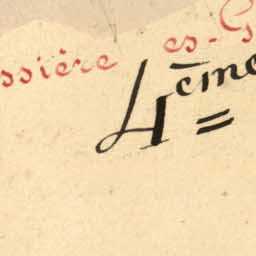 ssière es-G
4ème =